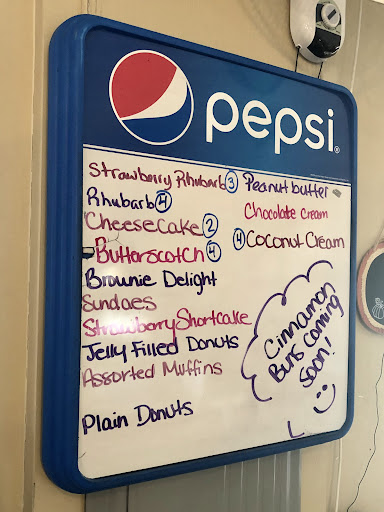 pepsi
Strawberry Rhubarb 3
Rhubarb 4
Cheesecake 2
Butterscotch 4
Brownie Delight
Sundaes
Strawberry Shortcake
Jelly Filled Donuts
Assorted Muffins
Plain Donuts
Peanut butter
Chocolate Cream
4 Coconut Cream
Cinnamon
Buns Coming
Soon!